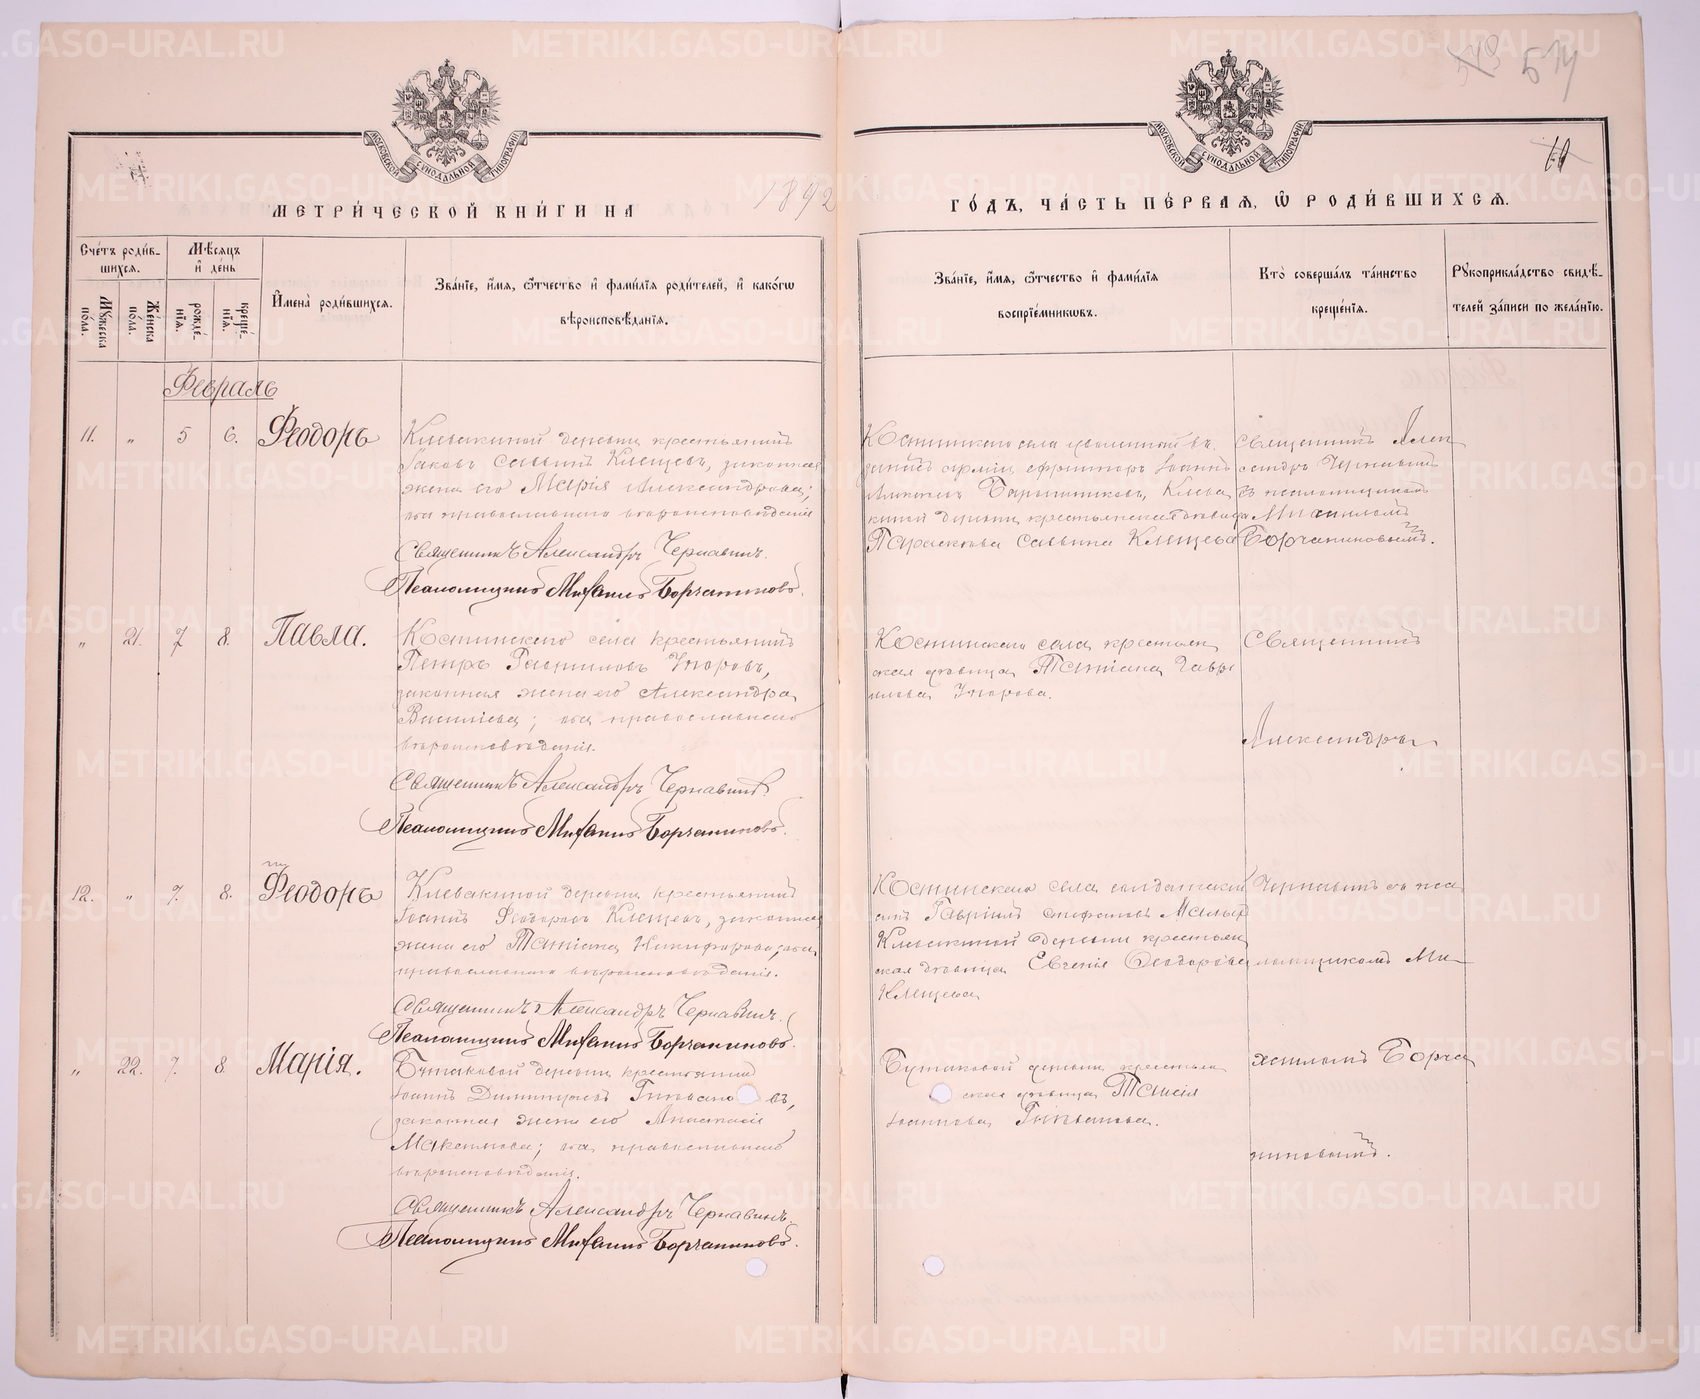 573 574
10
МОСКОВСКОЙ СѴНОДАЛЬНОЙ ТИПОГРАФІИ
МОСКОВСКОЙ СѴНОДАЛЬНОЙ ТИПОГРАФІИ
МЕТРИ́ЧЕСКОЙ КНИ́ГИ НА 1892
ГО́ДЪ, ЧА́СТЬ ПЕ́РВАѦ, Ѿ РОДИ́ВШИХСѦ.
Сче́тъ роди́в-
шихсѧ.
Мꙋжеска по́ла.
Же́нска по́ла.
Мѣ́сѧцъ и҆ де́нь
рожде́-нїѧ.
креще́-нїѧ.
И҆мена̀ роди́вшихсѧ.
Зва́нїе, и҆́мѧ, ѻ҆́тчество и҆ фами́лїѧ роди́телей, и҆ како́гѡ
вѣроисповѣ́данїѧ.
Зва́нїе, и҆́мѧ, ѻ҆́тчество и҆ фами́лїѧ
воспрїе́мникѡвъ.
Кто̀ соверша́лъ та́инство
креще́нїѧ.
Рꙋкоприкла́дство свидѣ́-
телей за́писи по жела́нїю.
Февраль
11. „ 5 6. Ѳеодоръ
Клевакиной деревни крестьянинъ
Іаковъ Саввинъ Клещевъ, законная
жена его Марія Александрова;
оба православнаго вѣроисповѣданія
Священникъ Александръ Чернавинъ.
Псаломщикъ Михаилъ Борчаниновъ.
Костинскаго села уволенный въ
запасъ арміи ефрейторъ Іоаннъ
Барышниковъ, Клева
киной деревни крестьянская дѣвица
Параскева Саввина Клещева
Священникъ Алек
сандръ Чернавинъ
съ псаломщикомъ
Михаиломъ
Борчаниновымъ.
„ 21. 7 8. Павла.
Костинскаго села крестьянинъ
Петръ Гавриловъ Упоровъ,
законная жена его Александра
Василіева; оба православнаго
вѣроисповѣданія.
Священникъ Александръ Чернавинъ.
Псаломщикъ Михаилъ Борчаниновъ.
Костинскаго села крестьян
ская дѣвица Татіана Гаври
илова Упорова.
Священникъ
Александръ
12. „ 7. 8. Ѳеодоръ
Клевакиной деревни крестьянинъ
Іоаннъ Ѳеодоровъ Клещевъ, законная
жена его Татіана Никифорова, оба
православнаго вѣроисповѣданія.
Священникъ Александръ Чернавинъ.
Псаломщикъ Михаилъ Борчаниновъ.
Костинскаго села солдатскій
сынъ Гавріилъ Стефановъ Малыг
Клевакиной деревни крестьян
ская дѣвица Евгенія Ѳеодорова
Клещева
Чернавинъ съ пса
ломщикомъ Ми
„ 22. 7. 8 Марія.
Бутаковой деревни крестьянинъ
Іоаннъ Димитріевъ въ,
законная жена его Анастасія
Макетиова; оба православнаго
вѣроисповѣданія.
Священникъ Александръ Чернавинъ.
Псаломщикъ Михаилъ Борчаниновъ.
Бутаковой деревни крестьян
ская дѣвица Таисія
Іоаннова
хаиломъ Борча
ниновымъ.
METRIKI.GASO-URAL.RU